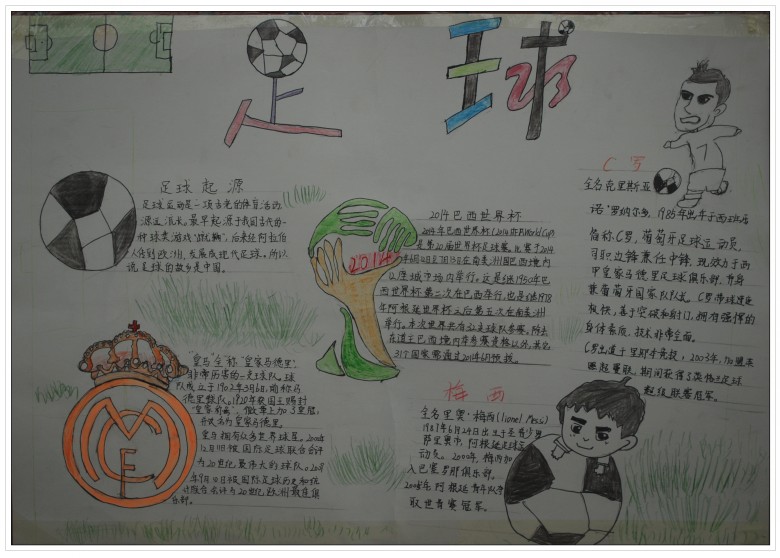 足球
足球起源
足球运动是一项古老的体育活动,
源远流长。最早起源于我国古代的一
种球类游戏“蹴鞠”,后来经阿拉伯
人传到欧洲,发展成现代足球。所以
说足球的故乡是中国。
2014
2014巴西世界杯
2014年巴西世界杯(2014 FIFA World Cup)
是第20届世界杯足球赛。比赛于2014
年6月12日至7月13日在南美洲国巴西境内
12座城市场内举行。这是继1950年巴
西世界杯第二次在巴西举行,也是继1978
年阿根廷世界杯之后第五次在南美洲
举行。本次世界共有32支球队参赛,除去
东道主巴西境内享参赛资格以外,其他
31个国家需通过2014的预拔。
C罗
全名克里斯亚
诺·罗纳尔多,1985年出生于
简称C罗,葡萄牙足球运动员,
可职边锋兼任中锋,现效力于西
甲皇家马德里足球俱乐部,
兼葡萄牙国家队队长。C罗带球速度
极快,善于突破和射门,拥有强悍的
身体素质,技术非常全面。
C罗出道于里斯本竞技,2003年,加盟英
超曼联,期间获得3英格兰足球
超级联赛冠军。
“皇马”全称“皇家马德里”,
非常历害的一支球队。球
队成立于1902年3月6日,简称马
德里球队。1920年获国王赐封
“皇家”,徽章上加3皇冠,
并改名为皇家马德里。
皇马拥有众多世界球星。2000年
12月11日被国际足球联合会评
为20世纪最伟大的球队。2009
年9月10日被国际足球历史和统
计联合会评为20世纪欧洲最佳俱
乐部。
梅西
全名里奥·梅西(Lionel Messi)
1987年6月24日出生于圣塔菲
罗萨里奥市,阿根廷足球运
动员。2000年,梅西加
入巴塞罗那俱乐部。
2005年阿根廷青年队夺
取世青赛冠军。